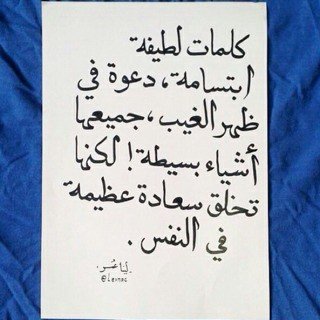 كلمات لطيفة
ابتسامة، دعوة في
ظهر الغيب، جميعها
أشياء بسيطة! لكنها
تخلق سعادة عظيمة
في النفس.